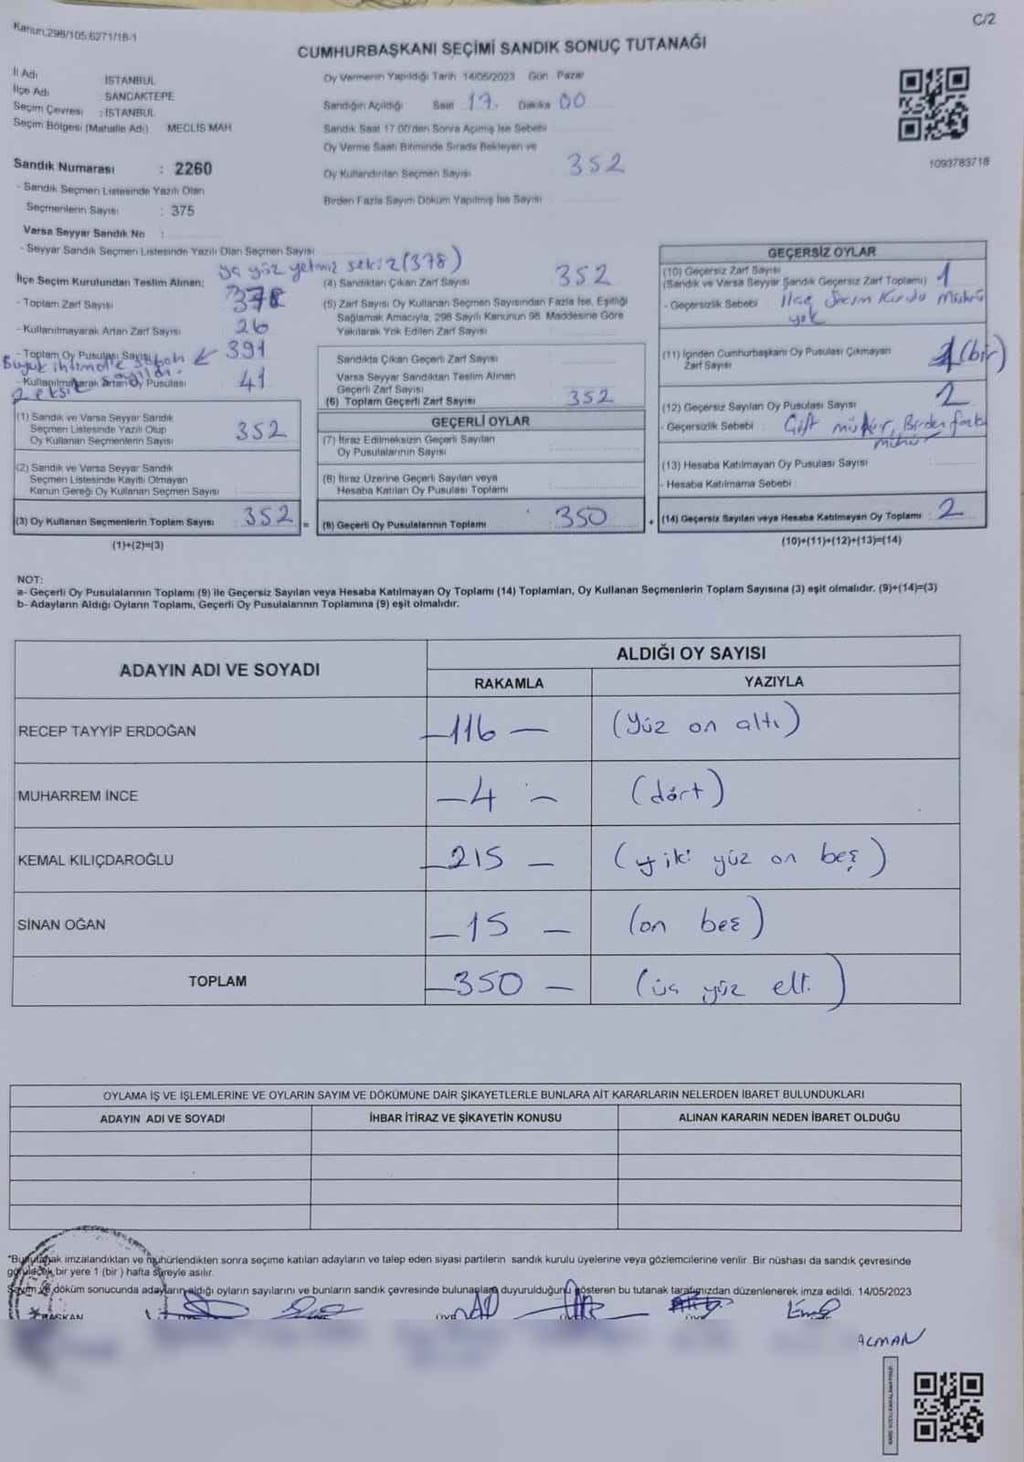 Kanun:298/105;6271/18-1
C/2
CUMHURBAŞKANI SEÇİMİ SANDIK SONUÇ TUTANAĞI
İl Adı : İSTANBUL
İlçe Adı : SANCAKTEPE
Seçim Çevresi : İSTANBUL
Seçim Bölgesi (Mahalle Adı) MECLİS MAH
Sandık Numarası : 2260
- Sandık Seçmen Listesinde Yazılı Olan
Seçmenlerin Sayısı : 375
Varsa Seyyar Sandık No :
- Seyyar Sandık Seçmen Listesinde Yazılı Olan Seçmen Sayısı
Oy Vermenin Yapıldığı Tarih 14/05/2023 Gün Pazar
Sandığın Açıldığı Saat 17. Dakika 00
Sandık Saat 17:00'den Sonra Açılmış İse Sebebi
Oy Verme Saati Bitiminde Sırada Bekleyen ve
Oy Kullandırılan Seçmen Sayısı 352
Birden Fazla Sayım Döküm Yapılmış İse Sayısı
1093783718
üç yüz yetmiş sekiz (378)
İlçe Seçim Kurulundan Teslim Alınan:
- Toplam Zarf Sayısı 378
- Kullanılmayarak Artan Zarf Sayısı 26
- Toplam Oy Pusulası Sayısı 391
Büyük ihtimalle
- Kullanılmayarak Artan Oy Pusulası 41
2 eksik
(1) Sandık ve Varsa Seyyar Sandık
Seçmen Listesinde Yazılı Olup
Oy Kullanan Seçmenlerin Sayısı 352
(2) Sandık ve Varsa Seyyar Sandık
Seçmen Listesinde Kayıtlı Olmayan
Kanun Gereği Oy Kullanan Seçmen Sayısı
(3) Oy Kullanan Seçmenlerin Toplam Sayısı 352 =
(1)+(2)=(3)
(4) Sandıktan Çıkan Zarf Sayısı 352
(5) Zarf Sayısı Oy Kullanan Seçmen Sayısından Fazla İse, Eşitliği
Sağlamak Amacıyla, 298 Sayılı Kanunun 98. Maddesine Göre
Yakılarak Yok Edilen Zarf Sayısı
Sandıkta Çıkan Geçerli Zarf Sayısı
Varsa Seyyar Sandıktan Teslim Alınan
Geçerli Zarf Sayısı
(6) Toplam Geçerli Zarf Sayısı 352
GEÇERLİ OYLAR
(7) İtiraz Edilmeksizin Geçerli Sayılan
Oy Pusulalarının Sayısı
(8) İtiraz Üzerine Geçerli Sayılan veya
Hesaba Katılan Oy Pusulası Toplamı
(9) Geçerli Oy Pusulalarının Toplamı 350 +
GEÇERSİZ OYLAR
(10) Geçersiz Zarf Sayısı
(Sandık ve Varsa Seyyar Sandık Geçersiz Zarf Toplamı) 1
- Geçersizlik Sebebi İlçe Seçim Kurulu Mührü
yok
(11) İçinden Cumhurbaşkanı Oy Pusulası Çıkmayan
Zarf Sayısı 1 (bir)
(12) Geçersiz Sayılan Oy Pusulası Sayısı 2
- Geçersizlik Sebebi Çift mühür, Birden fazla
mühür
(13) Hesaba Katılmayan Oy Pusulası Sayısı :
- Hesaba Katılmama Sebebi :
(14) Geçersiz Sayılan veya Hesaba Katılmayan Oy Toplamı : 2
(10)+(11)+(12)+(13)=(14)
NOT:
a- Geçerli Oy Pusulalarının Toplamı (9) ile Geçersiz Sayılan veya Hesaba Katılmayan Oy Toplamı (14) Toplamları, Oy Kullanan Seçmenlerin Toplam Sayısına (3) eşit olmalıdır. (9)+(14)=(3)
b- Adayların Aldığı Oyların Toplamı, Geçerli Oy Pusulalarının Toplamına (9) eşit olmalıdır.
ADAYIN ADI VE SOYADI
ALDIĞI OY SAYISI
RAKAMLA
YAZIYLA
RECEP TAYYİP ERDOĞAN -116- (Yüz on altı)
MUHARREM İNCE -4- (dört)
KEMAL KILIÇDAROĞLU -215- (iki yüz on beş)
SİNAN OĞAN -15- (on beş)
TOPLAM -350- (üç yüz elli)
OYLAMA İŞ VE İŞLEMLERİNE VE OYLARIN SAYIM VE DÖKÜMÜNE DAİR ŞİKAYETLERLE BUNLARA AİT KARARLARIN NELERDEN İBARET BULUNDUKLARI
ADAYIN ADI VE SOYADI
İHBAR İTİRAZ VE ŞİKAYETİN KONUSU
ALINAN KARARIN NEDEN İBARET OLDUĞU
*Bu tutanak imzalandıktan ve mühürlendikten sonra seçime katılan adayların ve talep eden siyasi partilerin sandık kurulu üyelerine veya gözlemcilerine verilir. Bir nüshası da sandık çevresinde
görülecek bir yere 1 (bir) hafta süreyle asılır.
Sayım ve döküm sonucunda adayların aldığı oyların sayılarını ve bunların sandık çevresinde bulunanlara duyurulduğunu gösteren bu tutanak tarafımızdan düzenlenerek imza edildi. 14/05/2023
BAŞKAN
ACMAN